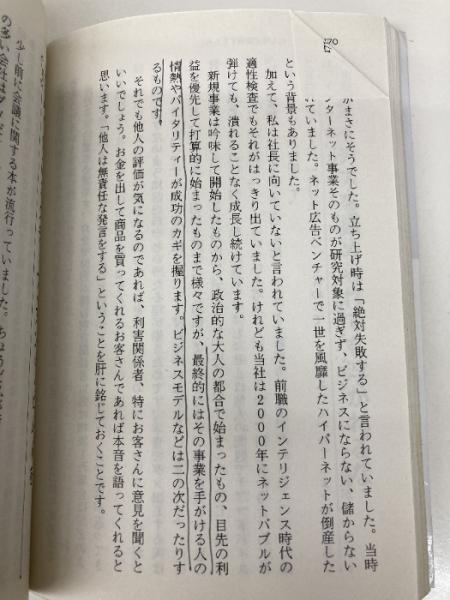 170
がまさにそうでした。立ち上げ時は「絶対失敗する」と言われていました。当時
ターネット事業そのものが研究対象に過ぎず、ビジネスにならない、儲からない
ていました。ネット広告ベンチャーで一世を風靡したハイパーネットが倒産した
という背景もありました。
加えて、私は社長に向いていないと言われていました。前職のインテリジェンス時代の
適性検査でもそれがはっきり出ていました。けれども当社は2000年にネットバブルが
弾けても、潰れることなく成長し続けています。
新規事業は吟味して開始したものから、政治的な大人の都合で始まったもの、目先の利
益を優先して打算的に始まったものまで様々ですが、最終的にはその事業を手がける人の
情熱やバイタリティーが成功のカギを握ります。ビジネスモデルなどは二の次だったりす
るものです。
それでも他人の評価が気になるのであれば、利害関係者、特にお客さんに意見を聞くと
いいでしょう。お金を出して商品を買ってくれるお客さんであれば本音を語ってくれると
思います。「他人は無責任な発言をする」ということを肝に銘じておくことです。
少し前に会議に関する本が流行っていました。
の多い会社はダメだ